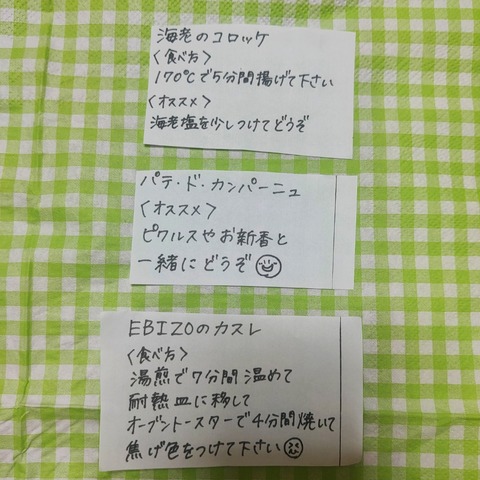 海老のコロッケ
〈食べ方〉
170℃で5分間揚げて下さい
〈オススメ〉
海老塩を少しつけてどうぞ
パテ・ド・カンパーニュ
〈オススメ〉
ピクルスやお新香と
一緒にどうぞ
EBIZOのカスレ
〈食べ方〉
湯煎で7分間温めて
耐熱皿に移して
オーブントースターで4分間焼いて
焦げ色をつけて下さい